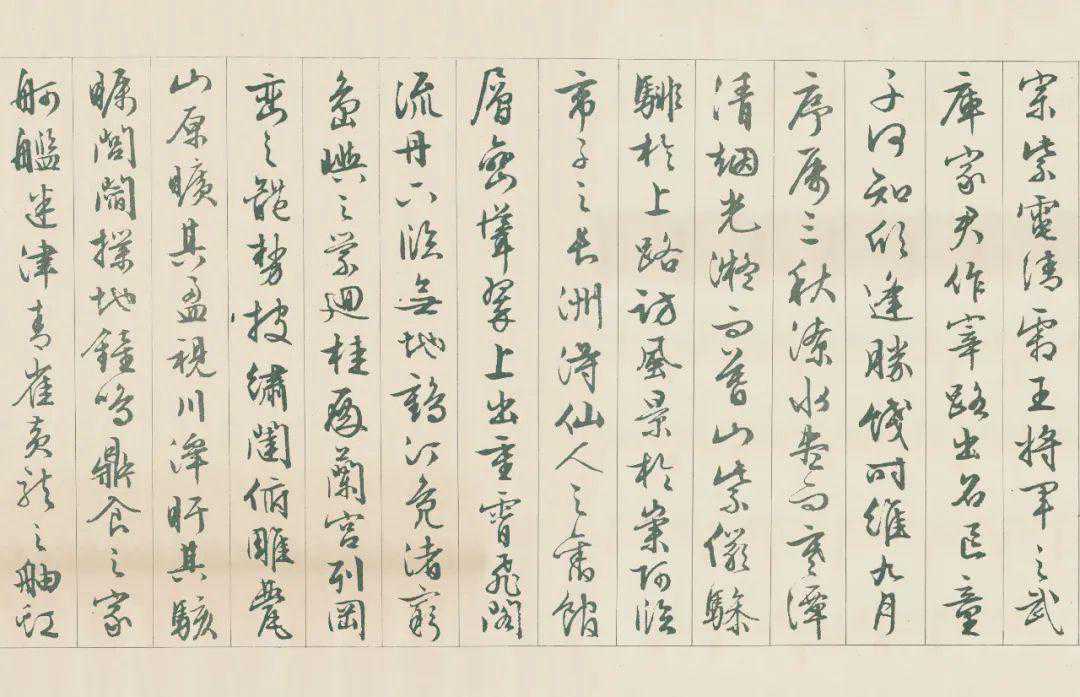 宗紫電清霜王將軍之武
庫家君作宰路出名區童
子何知躬逢勝餞時維九月
序属三秋潦水盡而寒潭
清烟光凝而暮山紫儼驂
騑於上路訪風景於崇阿臨
帝子之長洲得仙人之舊館
層巒聳翠上出重霄飛閣
流丹下臨無地鶴汀鳧渚窮
島嶼之縈迴桂殿蘭宮列岡
巒之體勢披繡闥俯雕甍
山原曠其盈視川澤盱其駭
矚閭閻撲地鐘鳴鼎食之家
舸艦迷津青雀黃龍之舳虹